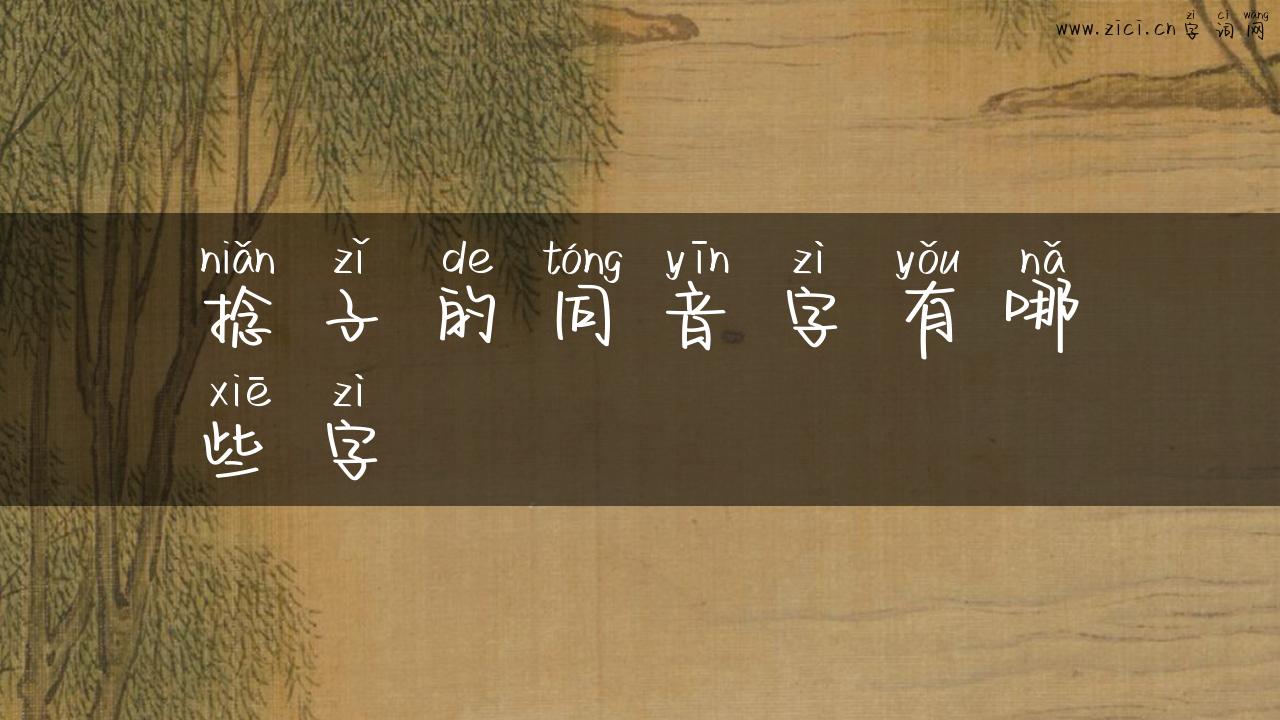 zì cí wǎng
www.zici.cn字词网
niǎn zǐ de tóng yīn zì yǒu nǎ
捻子的同音字有哪
xiē zì
些字